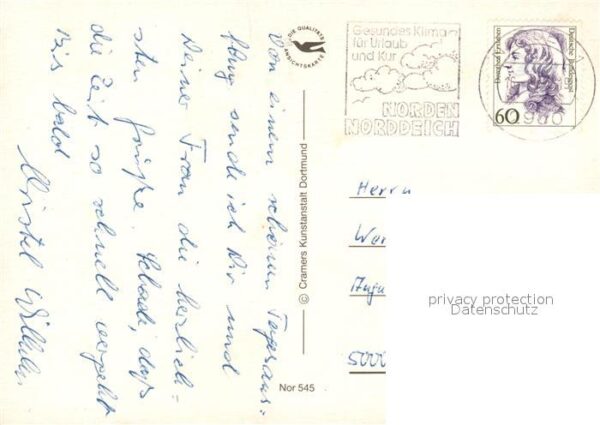 Von einem schönen Tagesaus-
flug sende ich Dir und
Deiner Frau die herzlich-
sten Grüße. Schade, daß
die Zeit so schnell vergeht
Bis bald
DIE QUALITÄTS
ANSICHTSKARTE
© Cramers Kunstanstalt Dortmund
Nor 545
Gesundes Klima
für Urlaub
und Kur
NORDEN
NORDDEICH
Deutsche Bundespost
60
Herrn
5000
privacy protection
Datenschutz